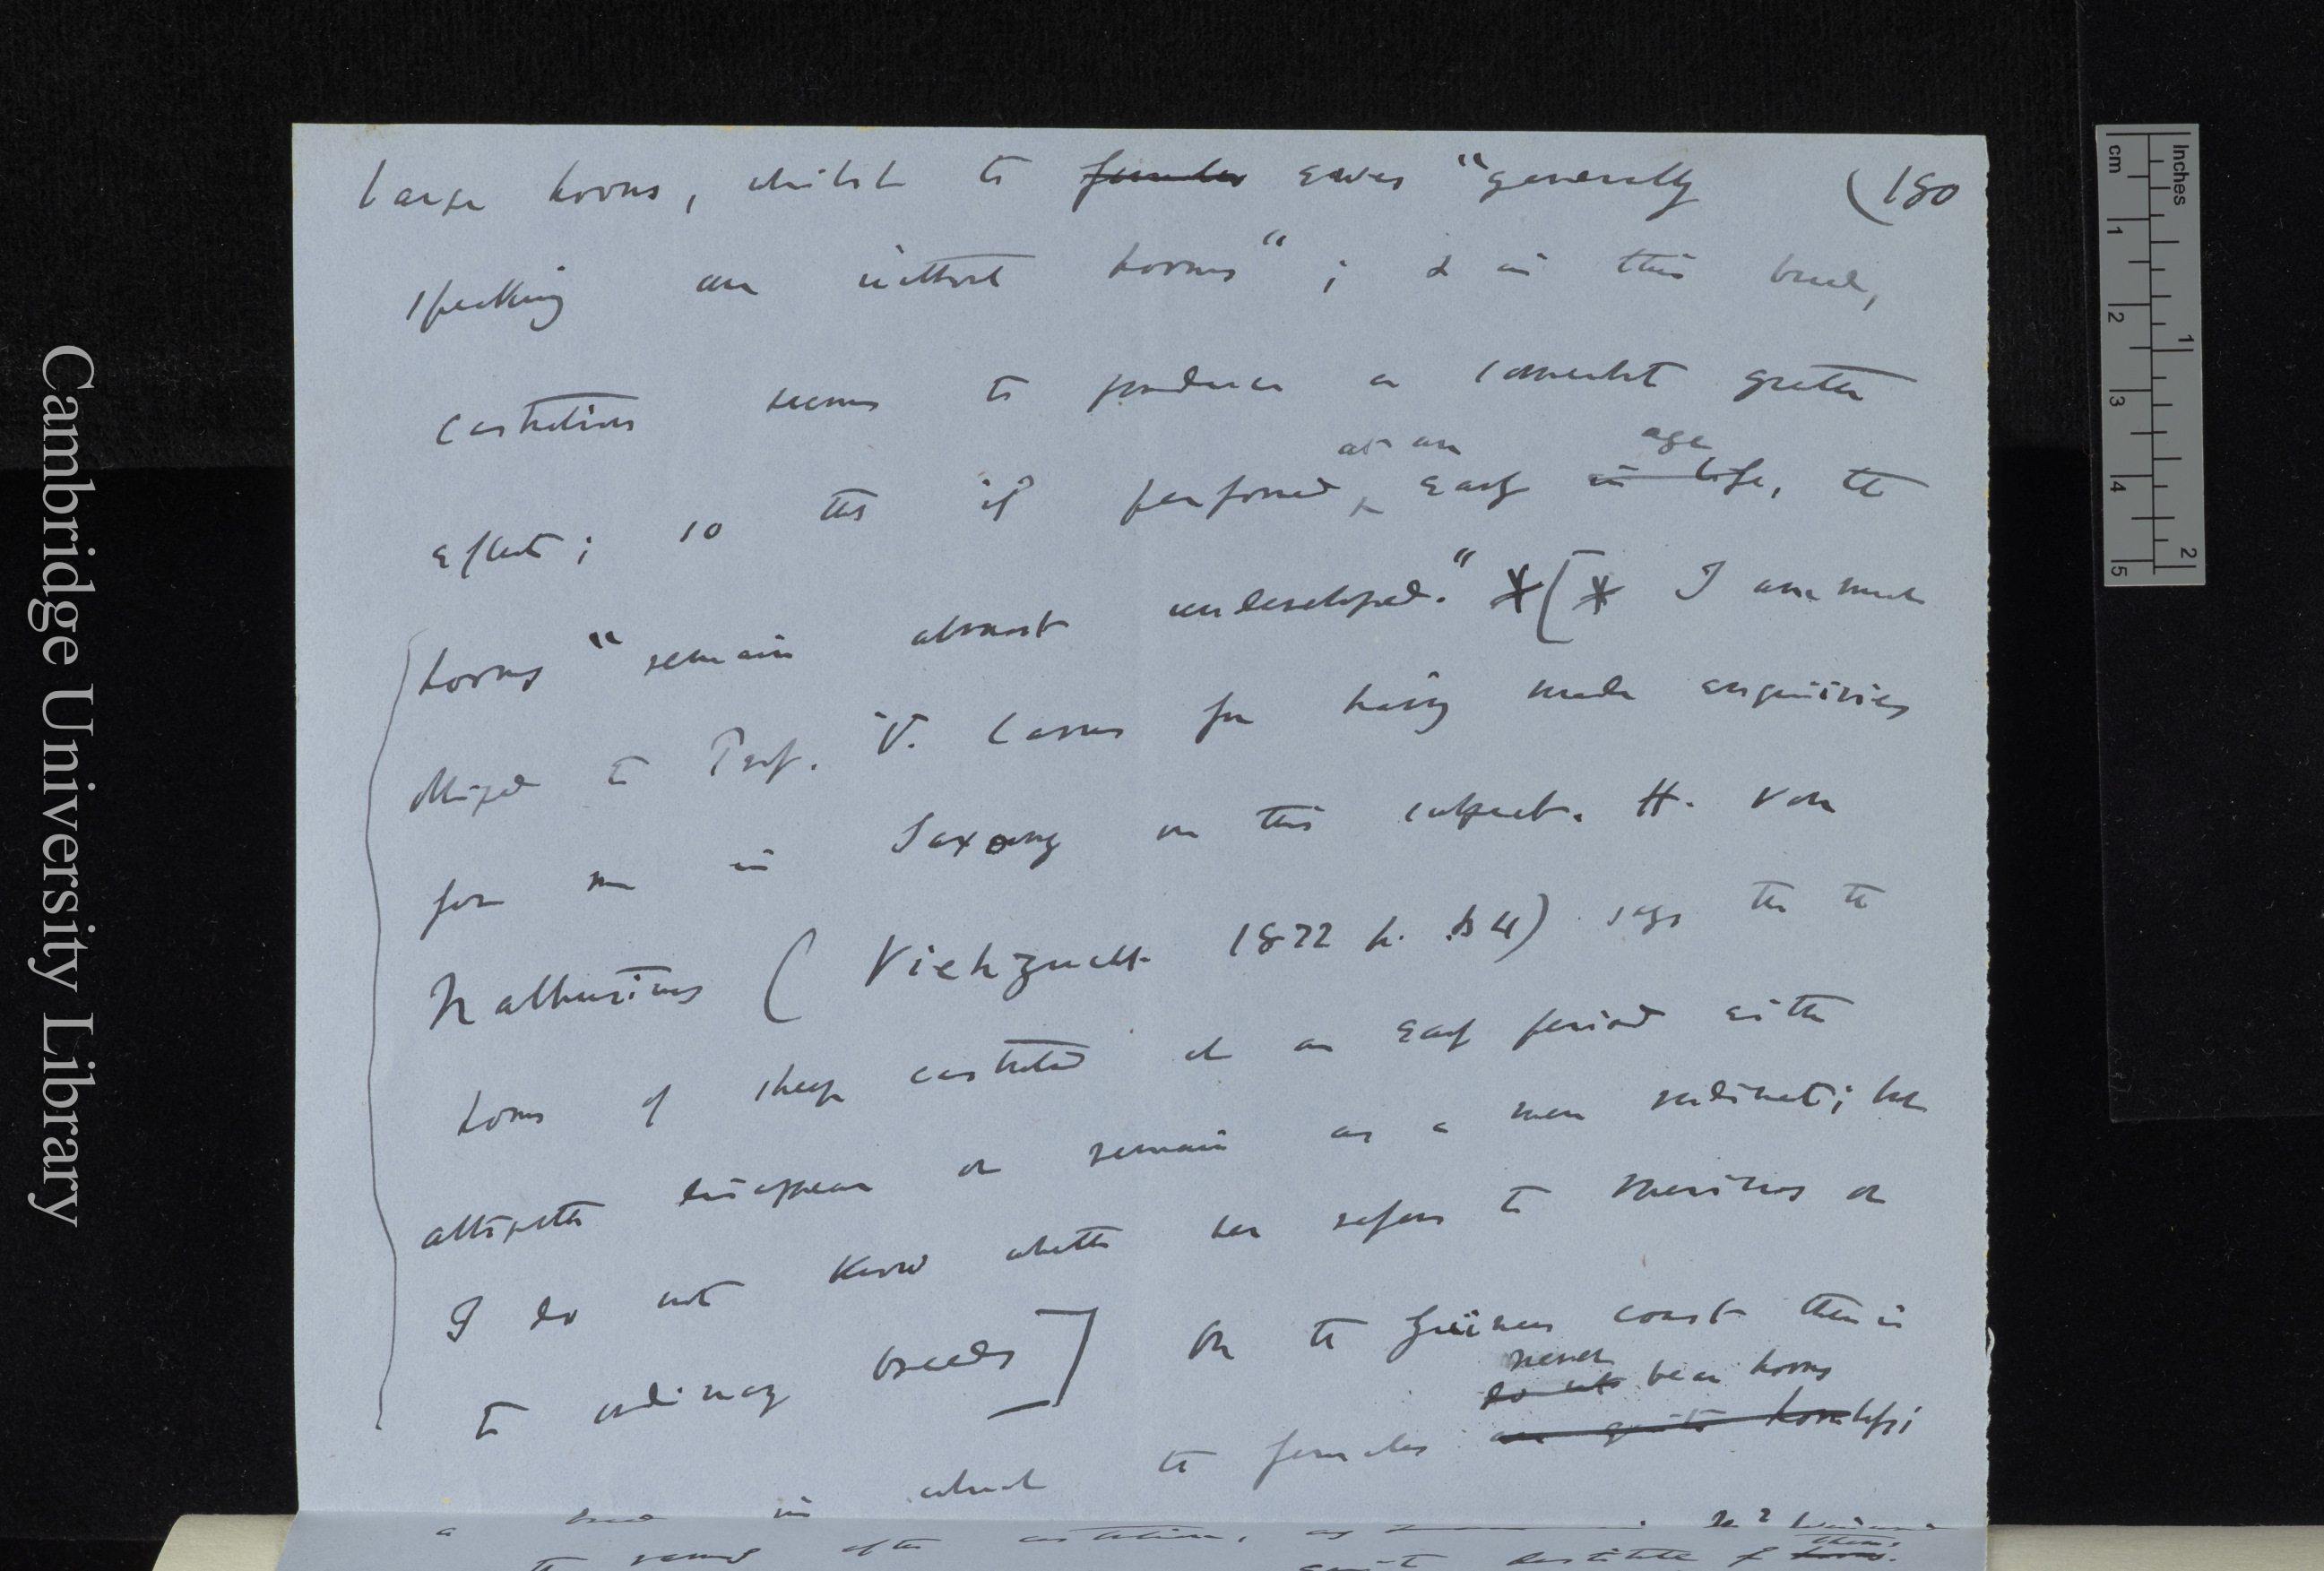 large horns, whilst the females ewes "generally (180
speaking are without horns"; & in this breed,
castration seems to produce a somewhat greater
at an age
effect; so that if performed early in life, the
horns "remain almost undeveloped." * [* I am much
obliged to Prof. V. Carus for having made enquiries
for me in Saxony on this subject. H. von
Nathusius (Viehzucht 1872 p. 64) says that the
horns of sheep castrated at an early period either
altogether disappear or remain as a mere rudiment; but
I do not know whether he refers to merinos or
to ordinary breeds] On the Guinea coast there is
never
do not bear horns
a breed in which the females are quite hornless;
the rams after castration, as
quite destitute of horns.
them.
Cambridge University Library
cm
1
2
3
4
5
Inches
1
2